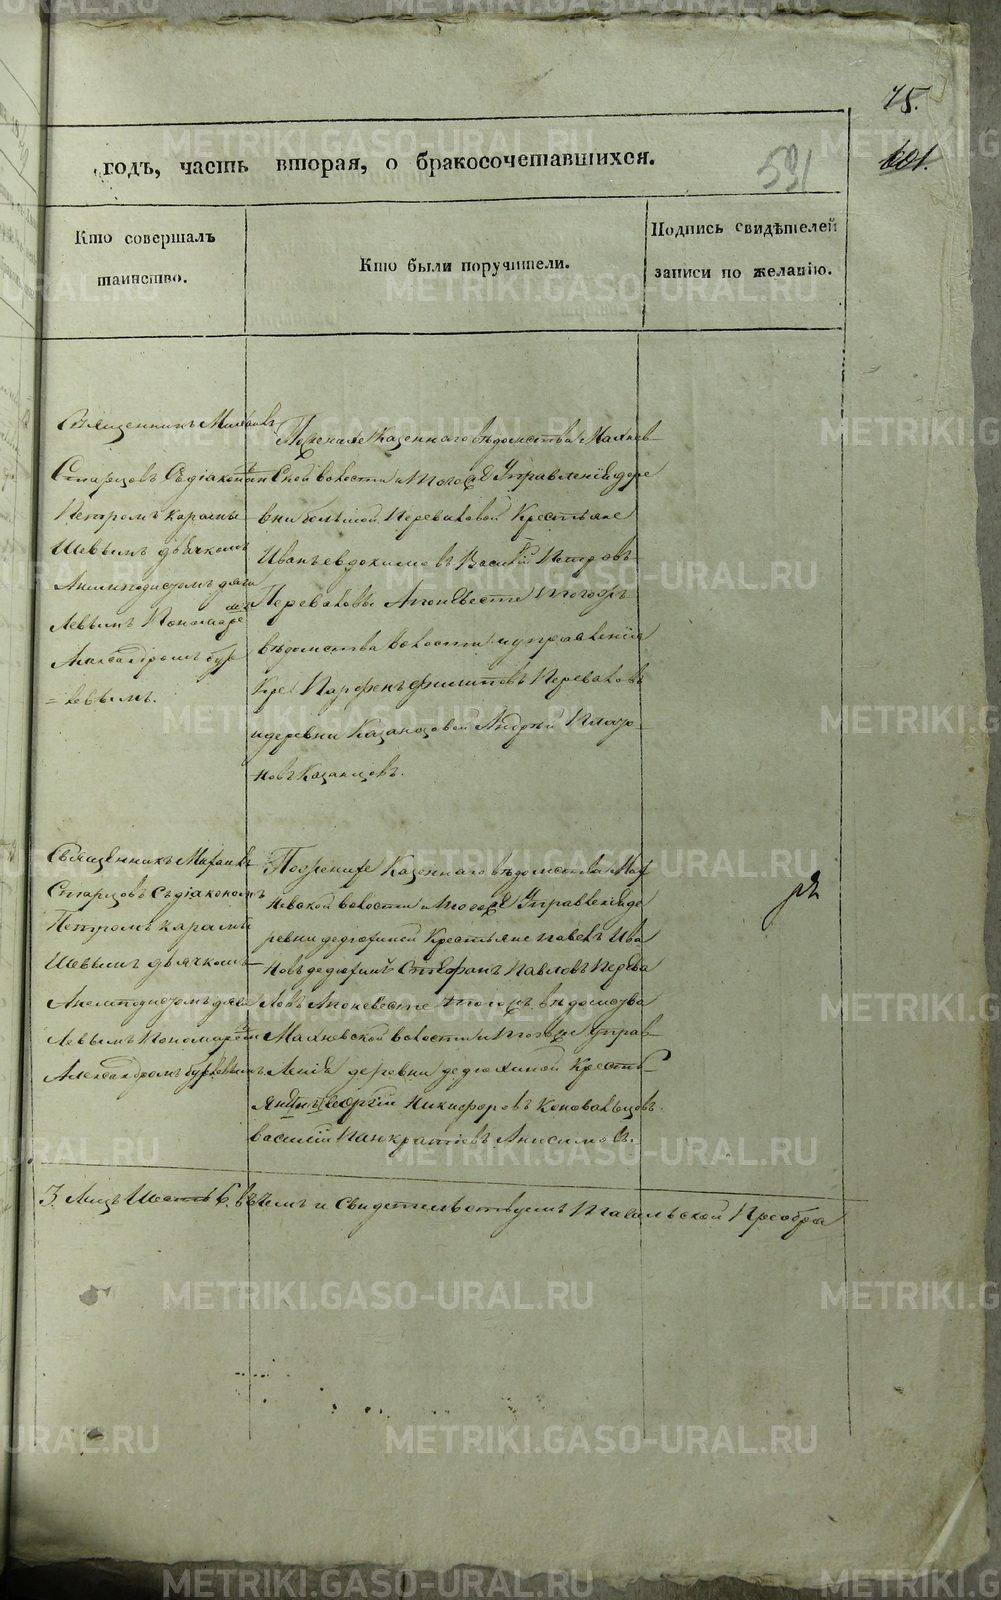 75.
601.
591
годъ, часть вторая, о бракосочетавшихся.
Кто совершалъ
таинство.
Кто были поручители.
Подпись свидѣтелей
записи по желанію.
Священникъ Михаилъ
Старцовъ Съ діакономъ
Петромъ Карамы
шевымъ дьячкомъ
Анемподистомъ дяги
левымъ Пономаре
мъ
Александромъ Бур
=левымъ.
По женихе Казеннаго вѣдомства Махнев
ской волости и того же Управленія дере
вни большой Переваловой Крестьяне
Иванъ евдокимовъ Василій Петровъ
Переваловы А по невѣсте того жъ
вѣдомства волости и управленія
Кре Парфенъ филиповъ Переваловъ
и деревни Казанцовой Андрей Плато
новъ Казанцовъ.
Священникъ Михаилъ
Старцовъ Съ діакономъ
Петромъ Карамы
шевымъ дьячкомъ
Анемподистомъ дяги
левымъ Пономаремъ
Александромъ Бурлевымъ
По женихе Казеннаго вѣдомства Мах
невской волости и того же Управленія де
ревни дедюхиной Крестьяне павелъ Ива
новъ дедюхинъ Стефанъ Павловъ Перева
ловъ А по невесте того жъ вѣдомства
Махневской волости и того же Управ
ленія деревни дедюхиной Кресть
янинъ георгій Никифоровъ Коновальцовъ
василій Панкратіевъ Анисимовъ.
въ чемъ и Свидетельствуемъ Тагильской Преобра
METRIKI.GASO-URAL.RU